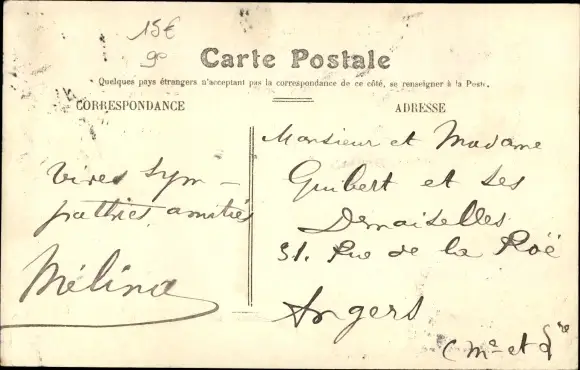 15€
9º
Carte Postale
Quelques pays étrangers n'acceptant pas la correspondance de ce côté, se renseigner à la Poste.
CORRESPONDANCE
ADRESSE
Vives sym-
pathies amitiés
Mélina
Monsieur et Madame
Guibert et ses
Demoiselles
31. Rue de la Roë
Angers
(Mne et Lre